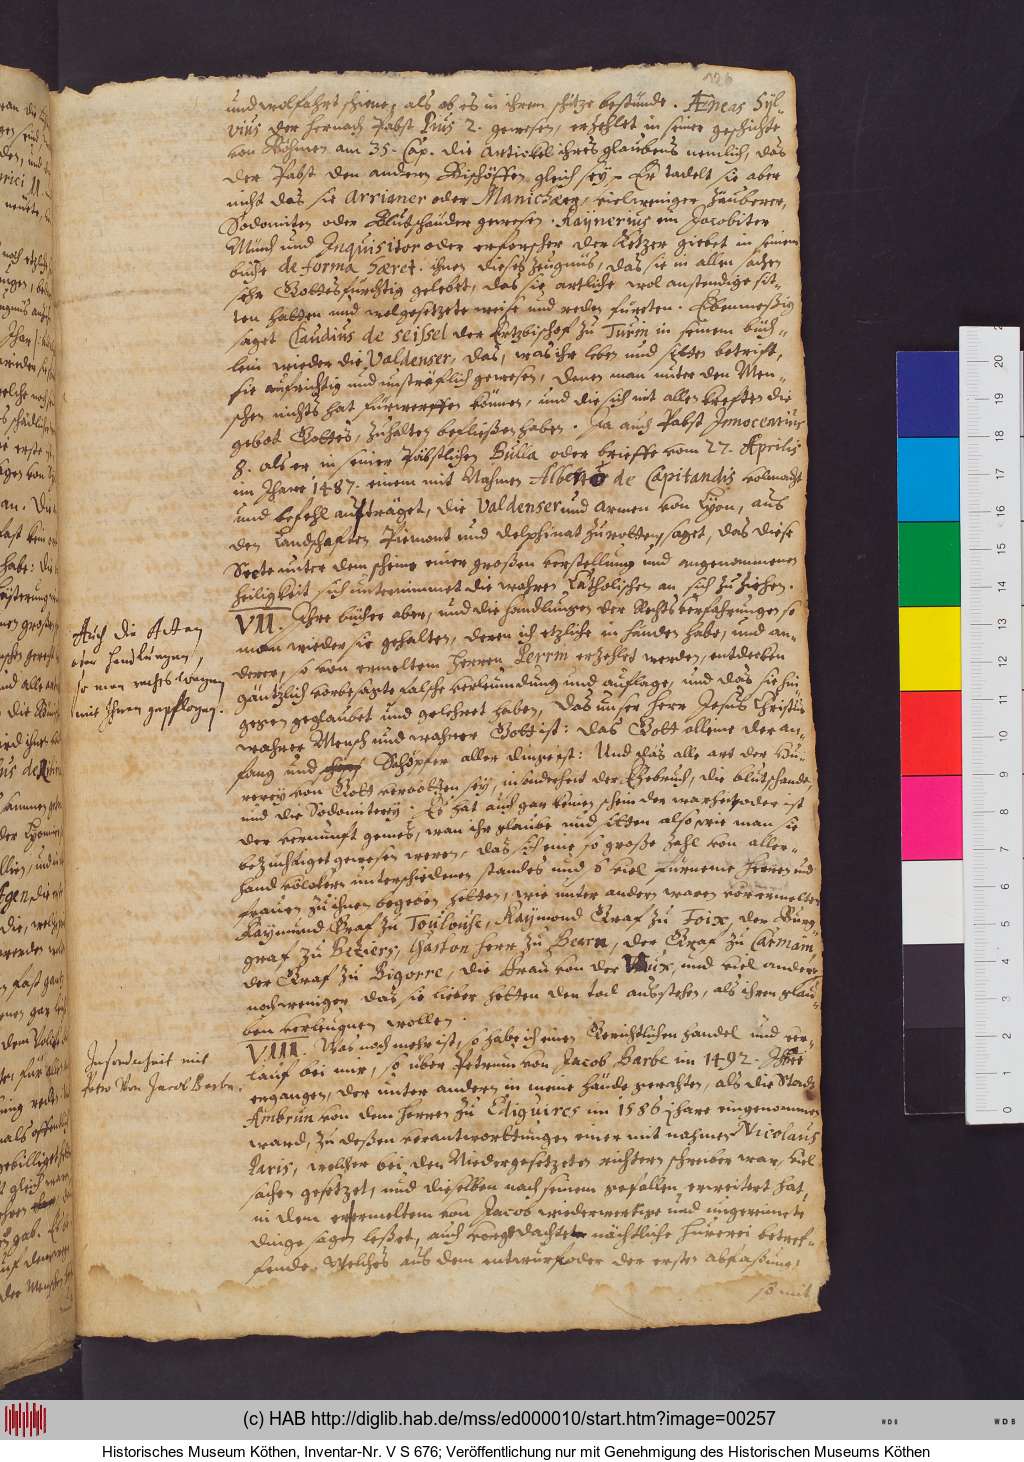 126
und wolfahrt schiene, als ob es in ihrem schutze bestünde. Æneas Syl-
vius der hernach Pabst Pius 2. gewesen, erzehlet in seiner geschichte
von Böhmen am 35. Cap. die Artickel ihres glaubens nemlich, das
der Pabst den anderen Bischöffen gleich sey. Er tadelt sie aber
nicht das sie Arrianer oder Manichæer, vielweniger zäuberer,
Sodomiten oder Blutschänder gewesen. Raynerius ein Jacobiter
Münch und Inquisitor oder erforscher der Ketzer giebet in seinem
buche de forma hæret. ihnen dieses zeugnüs, das sie in allen sachen
sehr Gottesfürchtig gelebet, das sie artliche wol anstendige sit-
ten hatten und wolgesetzete weise und reden fürten. Ebenmeßig
saget Claudius de Seissel der Ertzbischof zu Turin in seinem büch-
lein wieder die Valdenser, das, was ihr leben und sitten betrift,
sie aufrichtig und unsträflich gewesen, denen man unter den Men-
schen nichts hat fürwerffen können, und die sich mit allen kreften die
gebot Gottes, zuhalten befließen haben. Ja auch Pabst Innocentius
8. als er in seiner Päbstlichen Bulla oder brieffe vom 27. Aprilis
im Jhare 1487. einem mit Nahmen Alberto de Capitaneis volmacht
und befehl aufträget, die Valdenser und armen von Lyon, aus
den Landschaften Piemont und Delphinat zu rotten, saget, das diese
Secte unter dem scheine einer großen verstellung und angenommenen
heiligkeit sich unternimmet die wahren Catholischen an sich zu ziehen.
VII. Ihre bücher aber, und die handlungen der Rechts verfahrungen so
man wieder sie gehalten, deren ich etzliche in händen habe, und an-
dere, so von ermeltem Herren Perrin erzehlet werden, entdecken
gäntzlich vorbesagte falsche verleumdung und auflage, und das sie hin
gegen geglaubet und gelehret haben, das unser Herr Jesus Christus
wahrer Mensch und wahrer Gott ist: das Gott alleine der an-
fang und Schöpfer aller dinge ist: Und das alle art der Hu-
rerey von Gott verbotten sey, insonderheit der Ehebruch, die blutschande,
und die Sodomiterey: Es hat auch gar keinen schein der warheit, oder ist
der vernunft gemes, wan ihr glaube und sitten also wie man sie
bezüchtiget gewesen weren, das sich eine so große zahl von aller-
hand völckern unterschiedenen standes und so viel fürneme Herren und
frauen zu ihnen begeben hetten, wie unter andern waren vorermelten
Raymund Graf zu Toulouse, Raymond Graf zu Foix, der Burg-
graf zu Beziers, Gaston Herr zu Bearn, der Graf zu Carmain,
der Graf zu Bigorre, die Frau von der Vaux, und viel andere
noch weniger das sie lieber hetten den tod ausstehen, als ihren glau-
ben verleugnen wollen.
VIII. Was noch mehr ist, so habe ich einen Gerichtlichen handel und ver-
lauf bei mir, so über Petrum von Jacob Barbe im 1492. Jhare
ergangen, der unter andern in meine hände gerahten, als die Stadt
Ambrun von dem Herren zu Ediguires im 1586 jhare eingenommen
ward, zu deßen verantworttungen einer mit nahmen Nicolaus
Paris, welcher bei den Niedergesetzeten richtern schreiber war, viel
sachen gesetzet, und dieselben nach seinem gefallen erweitert hat,
in dem er ermeltem von Jacob wiederwertige und ungereimete
dinge sagen leßet, auch vorgedachte nächtliche hurerei betref-
fende. Welches aus dem entwurf oder der ersten abfaßung,
so mit
Auch die Acten
oder handlungen,
so man rechts wegen
mit Ihnen gepflogen.
Insonderheit mit
Petro von Jacob Barbe.
(c) HAB http://diglib.hab.de/mss/ed000010/start.htm?image=00257
Historisches Museum Köthen, Inventar-Nr. V S 676; Veröffentlichung nur mit Genehmigung des Historischen Museums Köthen